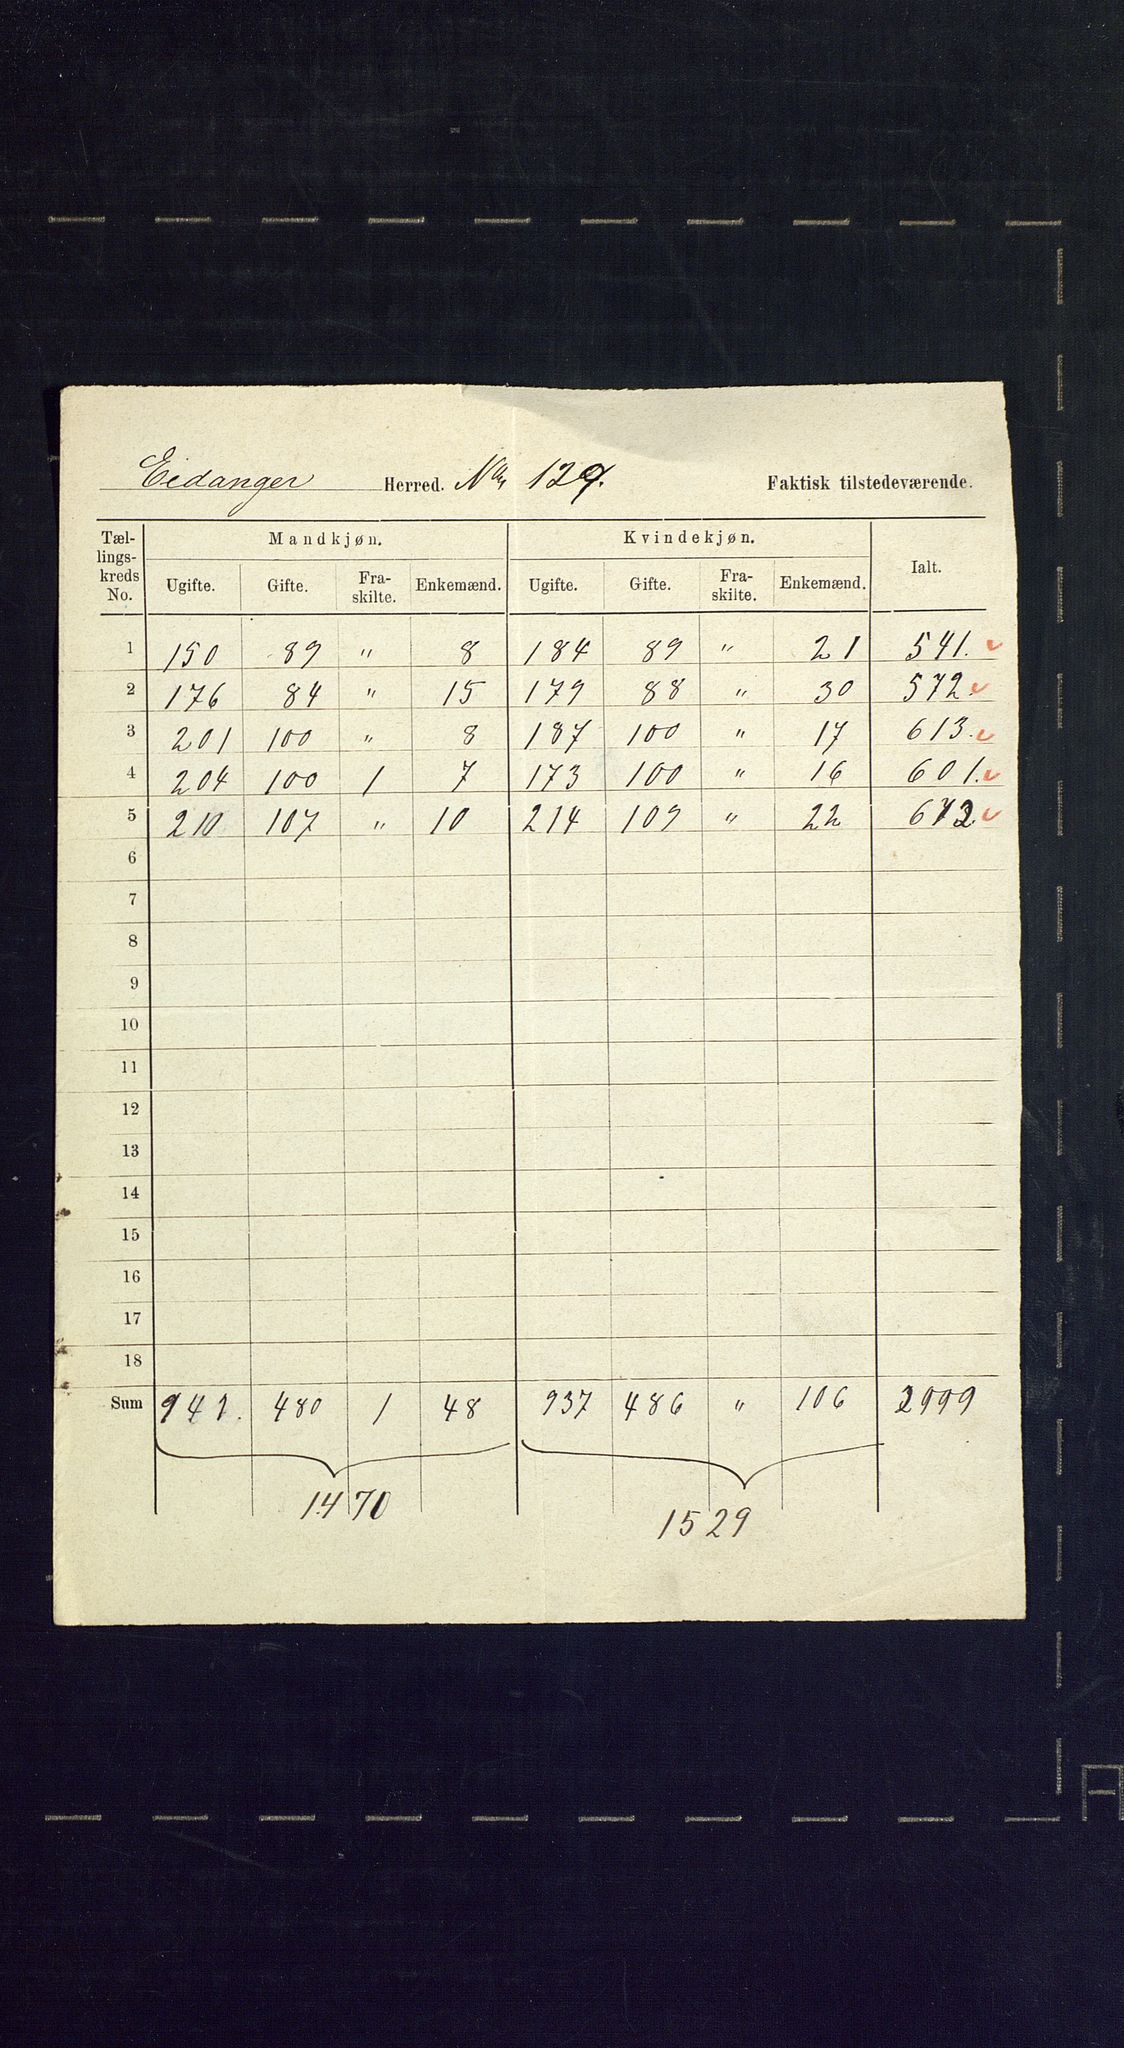 Eidanger Herred. No 129. Faktisk tilstedeværende.
Tællingskreds No. Mandkjøn. Kvindekjøn. Ialt.
Ugifte. Gifte. Fraskilte. Enkemænd. Ugifte. Gifte. Fraskilte. Enkemænd.
1 150 89 " 8 184 89 " 21 541.
2 176 84 " 15 179 88 " 30 572.
3 201 100 " 8 187 100 " 17 613.
4 204 100 1 7 173 100 " 16 601.
5 210 107 " 10 214 109 " 22 672.
6
7
8
9
10
11
12
13
14
15
16
17
18
Sum 941. 480 1 48 937 486 " 106 2999
1470 1529
A